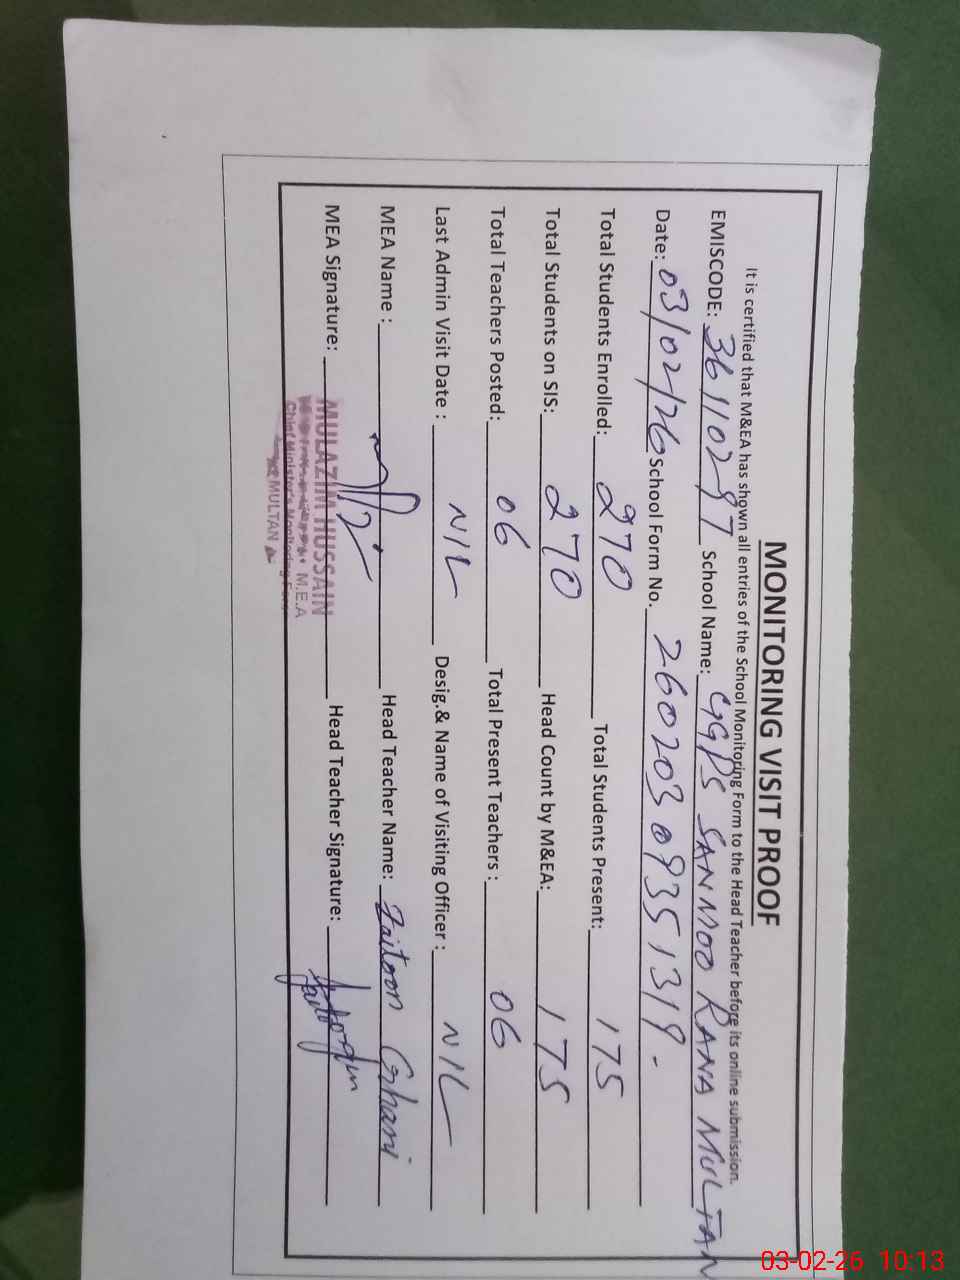 MONITORING VISIT PROOF
It is certified that M&EA has shown all entries of the School Monitoring Form to the Head Teacher before its online submission.
EMISCODE: 36110297 School Name: GGPS SANMOO RANA MULTAN
Date: 03/02/26 School Form No. 26020309351319-
Total Students Enrolled: 270 Total Students Present: 175
Total Students on SIS: 270 Head Count by M&EA: 175
Total Teachers Posted: 06 Total Present Teachers : 06
Last Admin Visit Date : NIL Desig.& Name of Visiting Officer : NIL
MEA Name : Head Teacher Name: Zaitoon Ghani
MEA Signature: Head Teacher Signature:
MULAZIM HUSSAIN
M.E.A
Chief Minister's Monitoring Force
MULTAN
03-02-26 10:13